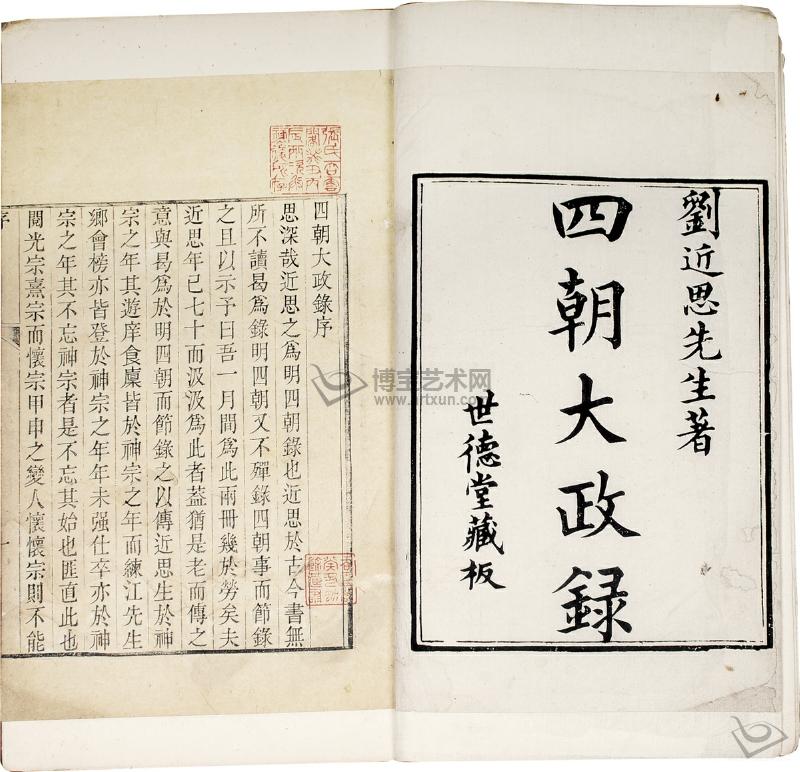 劉近思先生著
四朝大政録
世德堂藏板
四朝大政錄序
思深哉近思之爲明四朝錄也近思於古今書無
所不讀曷爲錄明四朝又不殫錄四朝事而節錄
之且以示予曰吾一月間爲此兩冊幾於勞矣夫
近思年已七十而汲汲爲此者葢猶是老而傳之
意與曷爲於明四朝而節錄之以傳近思生於神
宗之年其遊庠食廩皆於神宗之年而練江先生
鄉會榜亦皆登於神宗之年年未强仕卒亦於神
宗之年其不忘神宗者是不忘其始也匪直此也
閱光宗熹宗而懷宗甲申之變人懷懷宗則不能
序
一
博宝艺术网
www.artxun.com